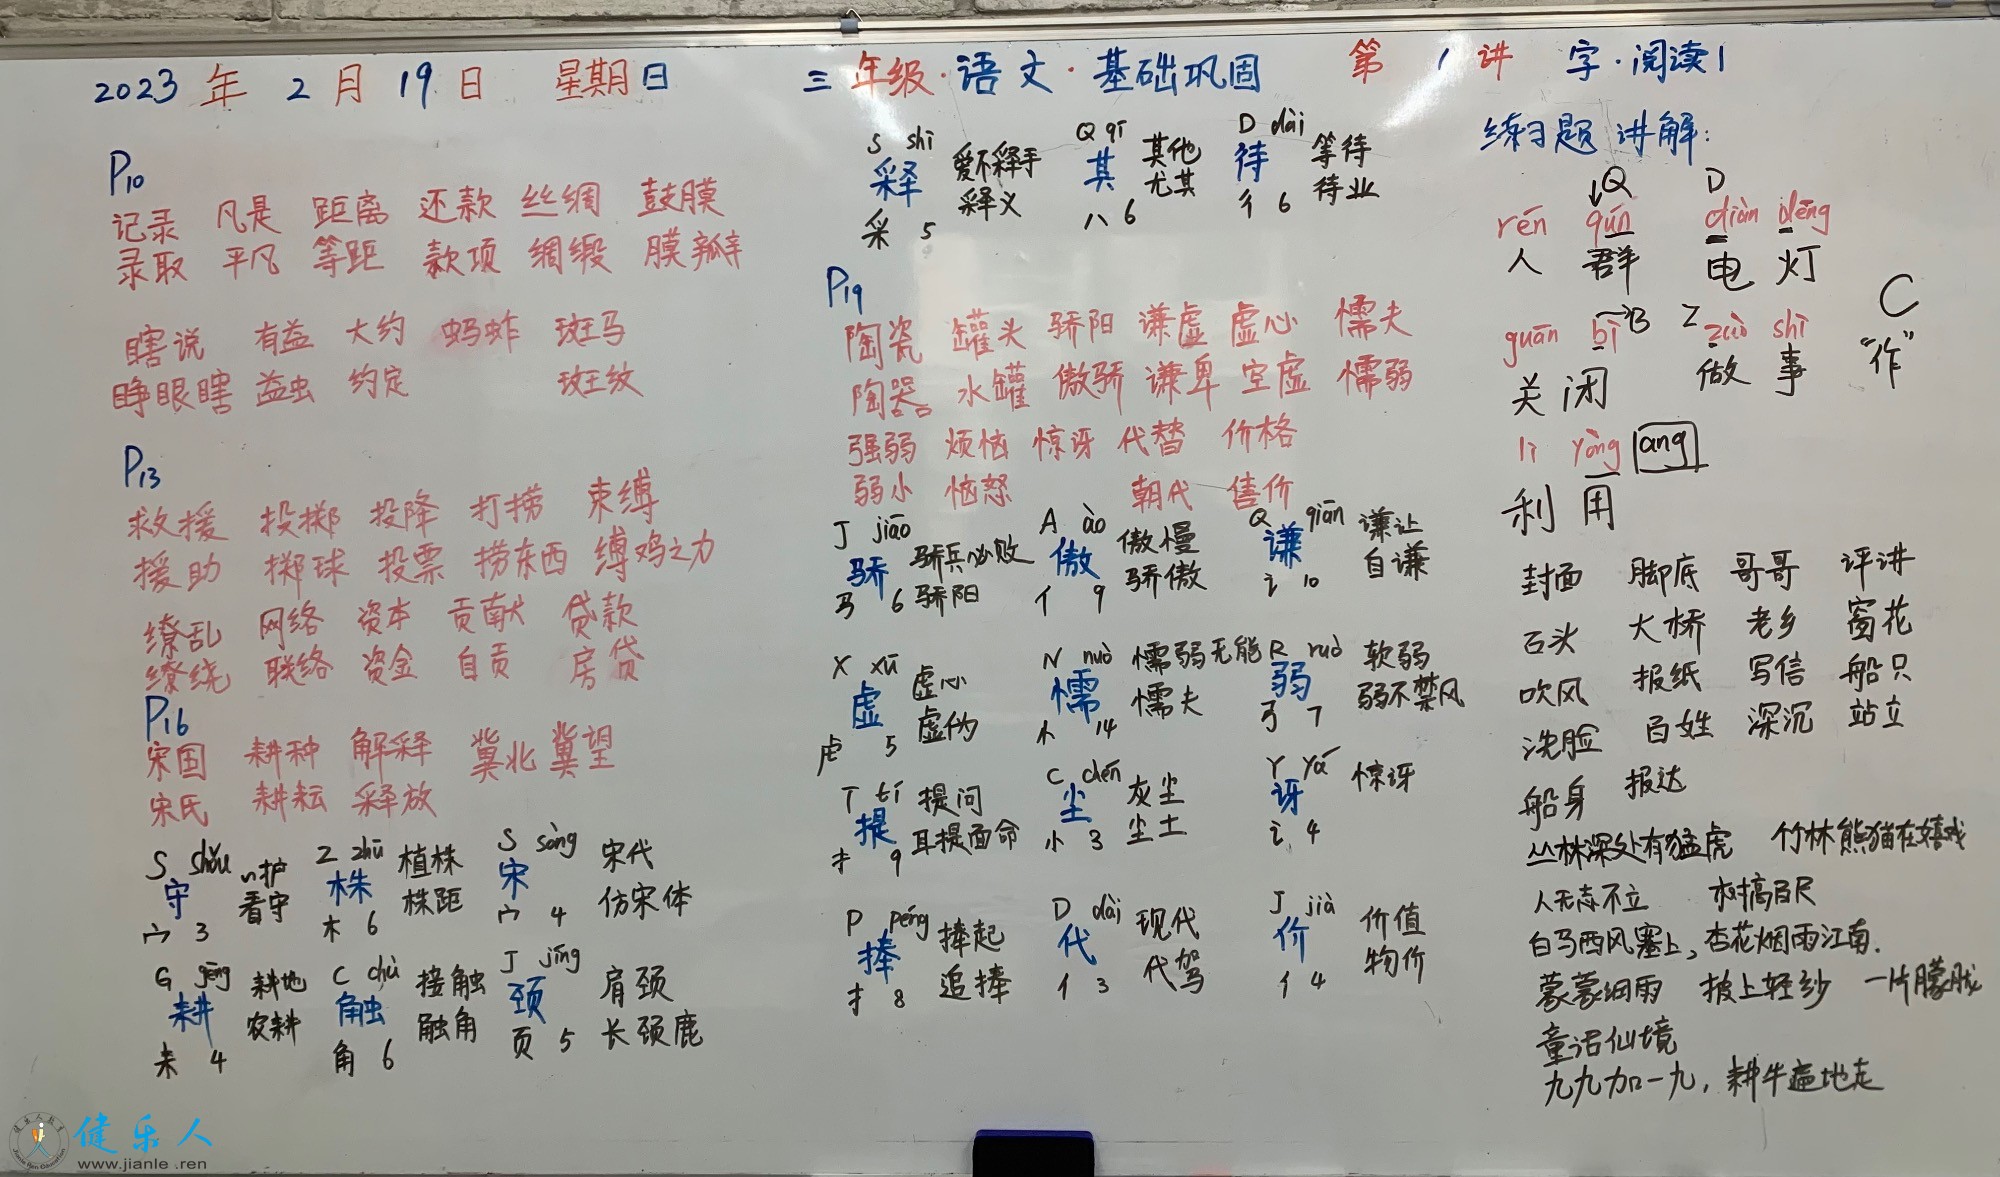 2023 年 2 月 19 日 星期日
三 年级·语文·基础巩固 第 1 讲 字·阅读1
P10
记录 凡是 距离 还款 丝绸 鼓膜
录取 平凡 等距 款项 绸缎 膜瓣
瞎说 有益 大约 蚂蚱 斑马
睁眼瞎 益虫 约定 斑纹
P13
救援 投掷 投降 打捞 束缚
援助 掷球 投票 捞东西 缚鸡之力
缭乱 网络 资本 贡献 贷款
缭绕 联络 资金 自贡 房贷
P16
宋国 耕种 解释 冀北 冀望
宋氏 耕耘 释放
S shǒu Z zhū S sòng
守 守护 株 植株 宋 宋代
宀 3 看守 木 6 株距 宀 4 仿宋体
G gēng C chù J jǐng
耕 耕地 触 接触 颈 肩颈
耒 4 农耕 角 6 触角 页 5 长颈鹿
S shì Q qí D dài
释 爱不释手 其 其他 待 等待
采 5 释义 八 6 尤其 彳 6 待业
P19
陶瓷 罐头 骄阳 谦虚 虚心 懦夫
陶器 水罐 傲骄 谦卑 空虚 懦弱
强弱 烦恼 惊讶 代替 价格
弱小 恼怒 朝代 售价
J jiāo A ào Q qiān
骄 骄兵必败 傲 傲慢 谦 谦让
马 6 骄阳 亻 9 骄傲 讠 10 自谦
X xū N nuò R ruò
虚 虚心 懦 懦弱无能 弱 软弱
虍 5 虚伪 忄 14 懦夫 弓 7 弱不禁风
T tí C chén Y yà
提 提问 尘 灰尘 讶 惊讶
扌 9 耳提面命 小 3 尘土 讠 4
P pěng D dài J jià
捧 捧起 代 现代 价 价值
扌 8 追捧 亻 3 代驾 亻 4 物价
练习题 讲解:
Q D
rén qún diàn dēng
人 群 电 灯
B Z C
guān bì zuò shì
关 闭 做 事 “作”
lì yòng ang
利 用
封面 脚底 哥哥 评讲
石头 大桥 老乡 窗花
吹风 报纸 写信 船只
洗脸 百姓 深沉 站立
船身 报达
丛林深处有猛虎 竹林熊猫在嬉戏
人无志不立 树高百尺
白马西风塞上,杏花烟雨江南.
蒙蒙细雨 披上轻纱 一片朦胧
童话仙境
九九加一九,耕牛遍地走
健乐人
www.jianle.ren